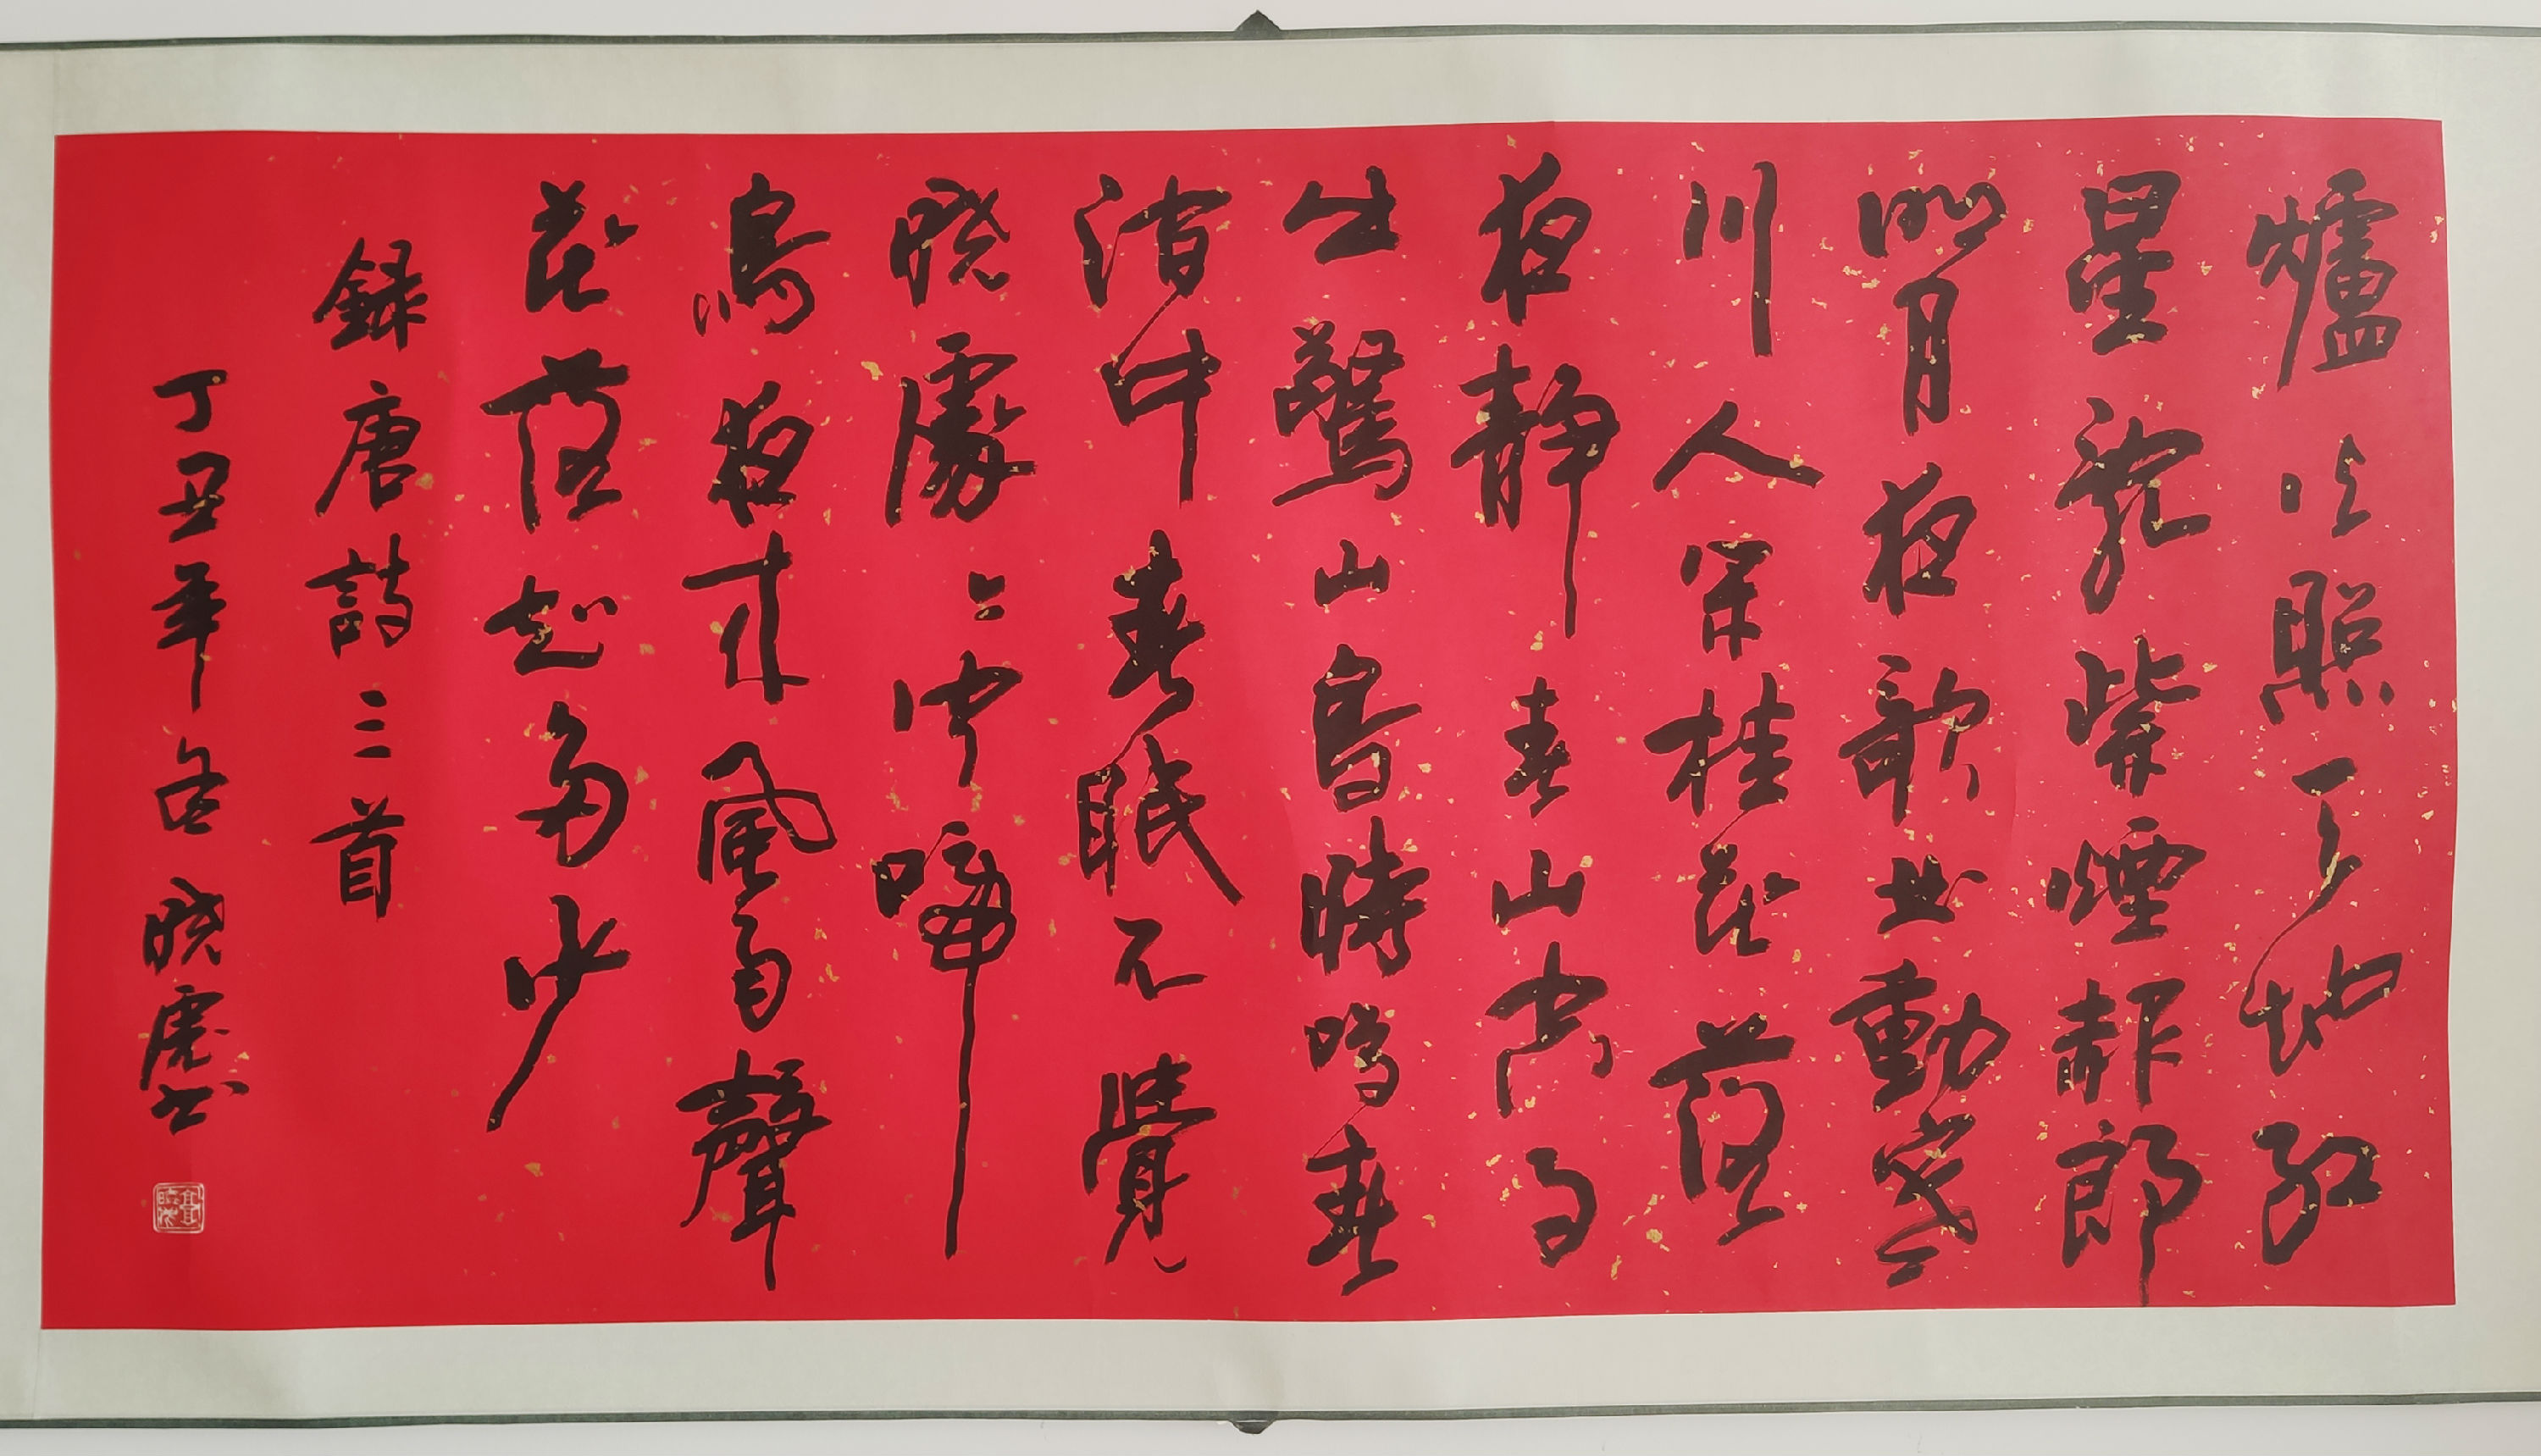 爐火照天地紅
星亂紫煙赧郎
明月夜歌曲動寒
川人閑桂花落
夜静春山空月
出驚山鳥時鳴春
澗中春眠不覺
曉處〻聞啼
鳥夜来風雨聲
花落知多少
録唐詩三首
丁丑年冬曉虎书